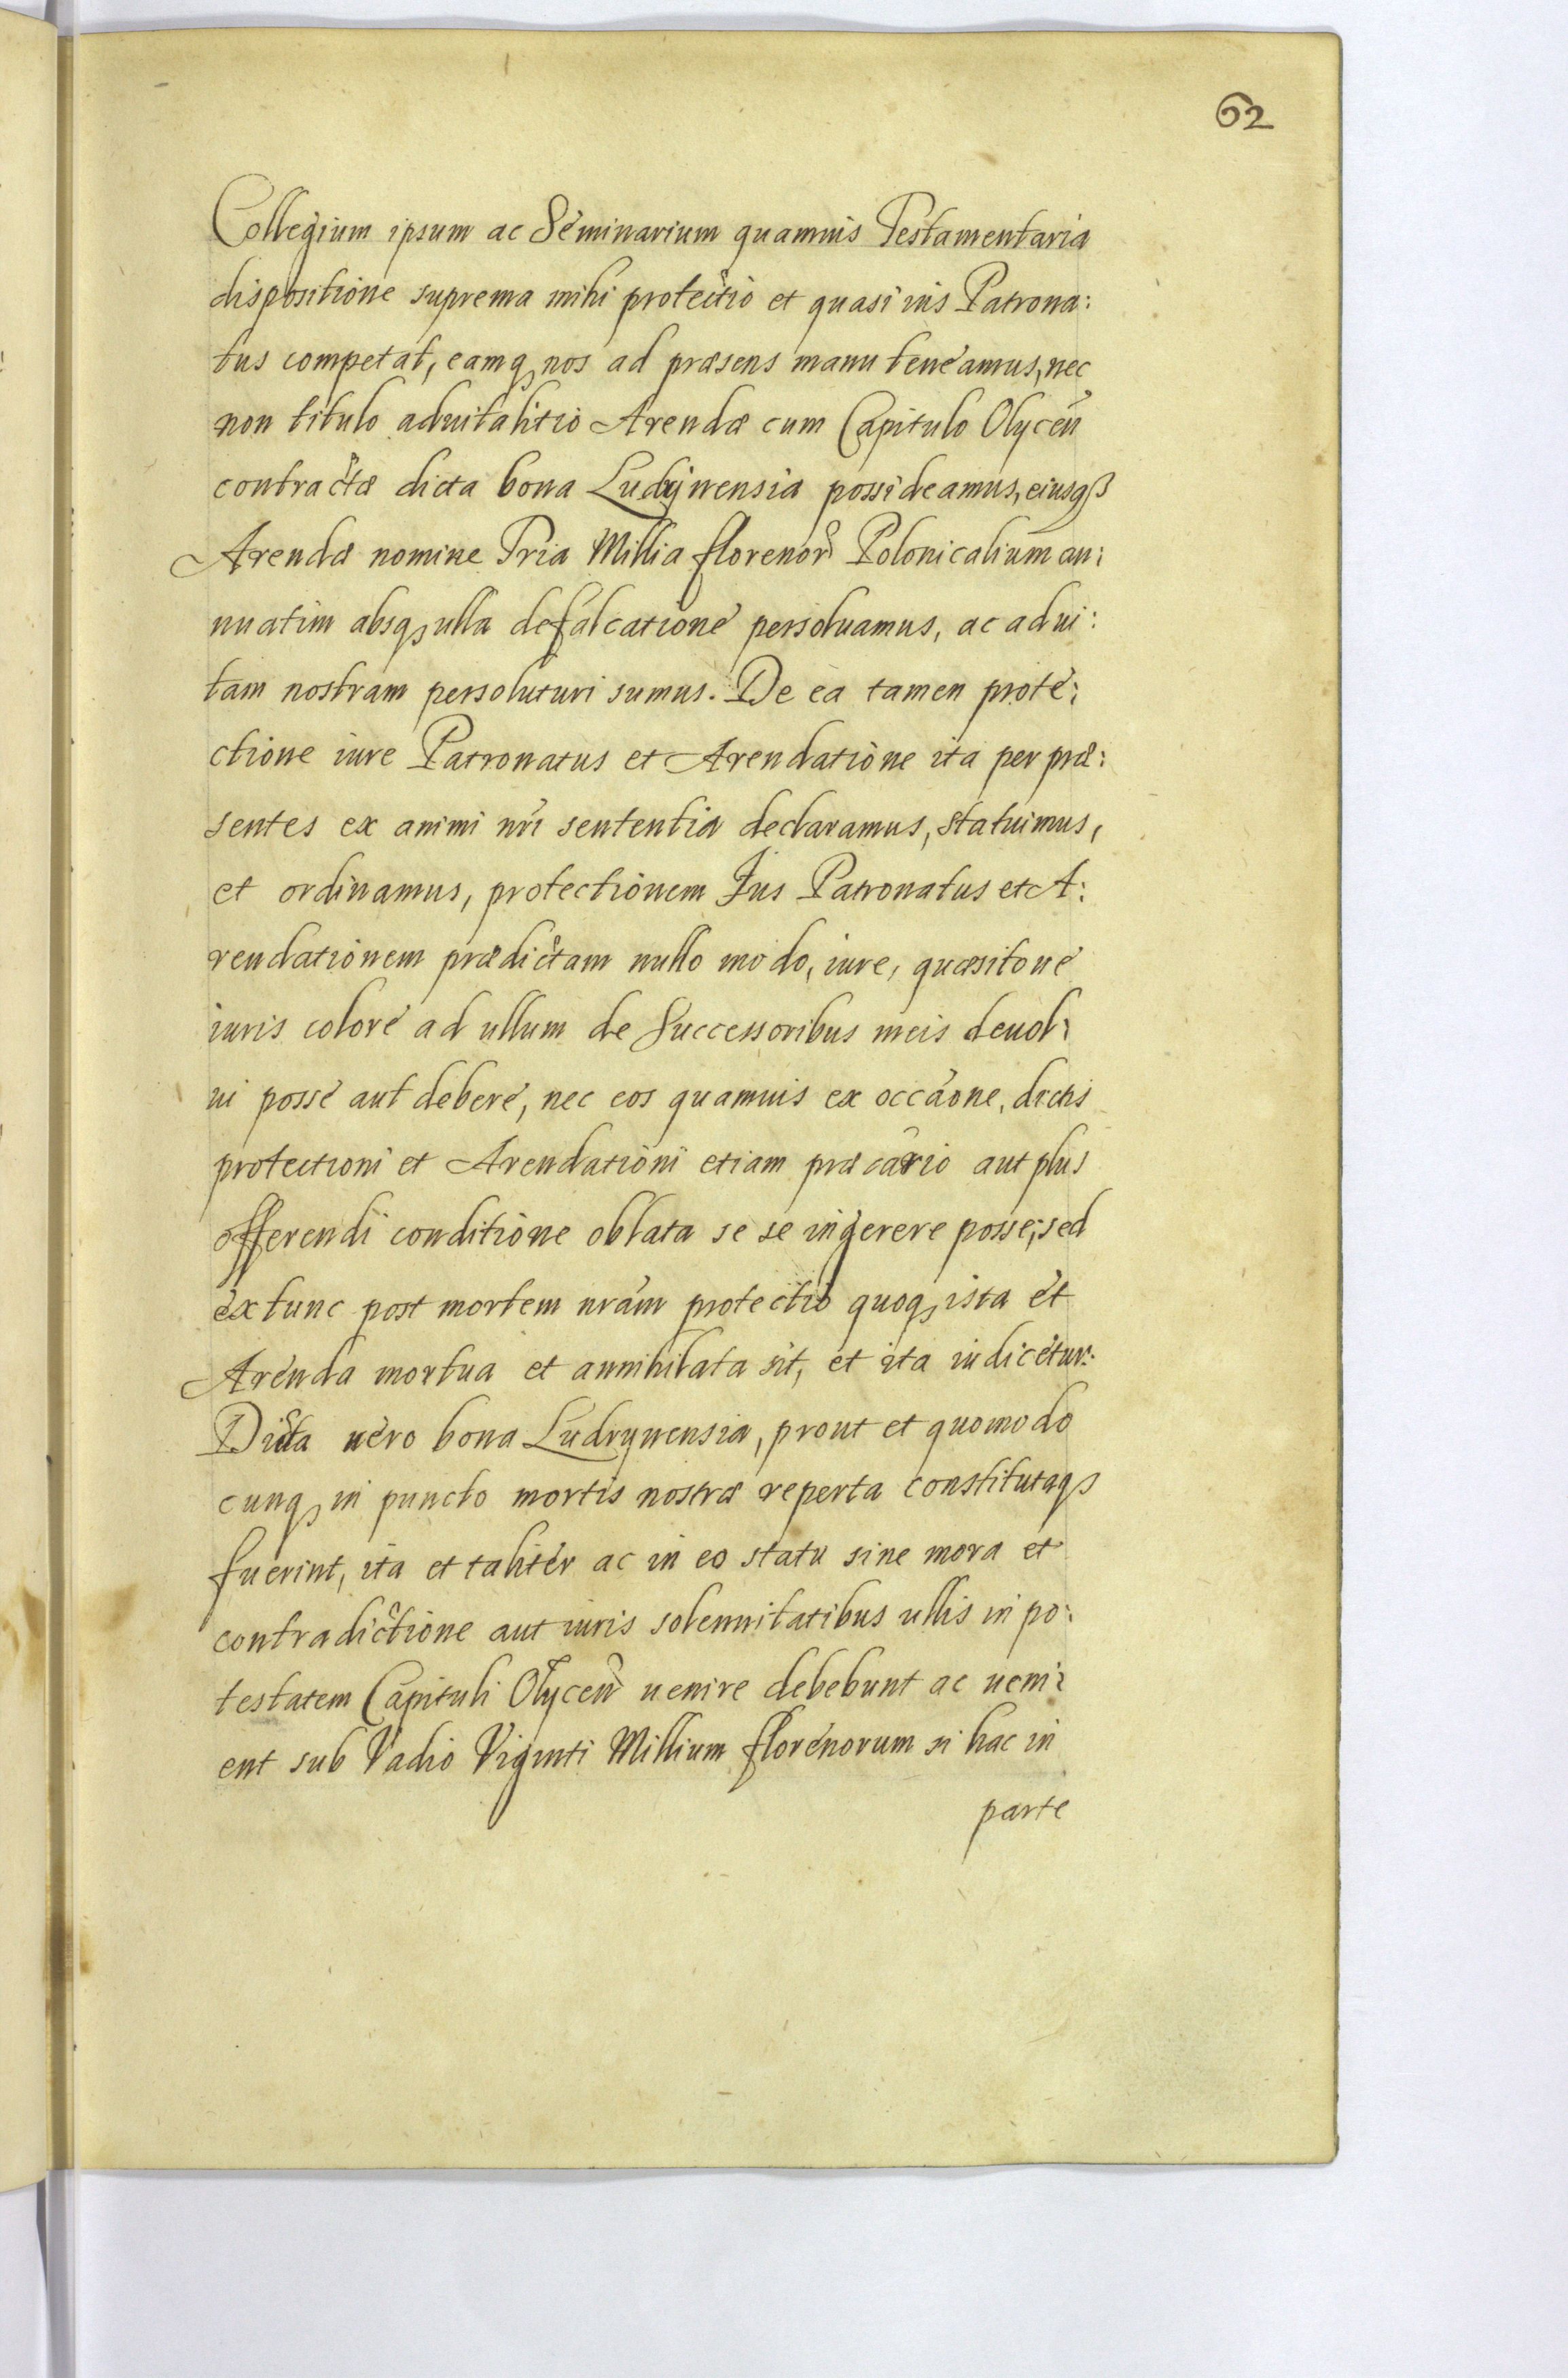 62
Collegium ipsum ac Seminarium quamuis Testamentaria
dispositione suprema mihi protectio et quasi ius Patrona:
tus competat, eamq₃ nos ad præsens manu teneamus, nec
non titulo aduitalitio Arendæ cum Capitulo Olyceñ
contractæ dicta bona Ludrÿnensia possideamus, eiusq₃
Arendæ nomine Tria Millia florenor̃ Polonicalium an:
nuatim absq₃ ulla defalcatione persoluamus, ac ad ui:
tam nostram persoluturi sumus. De ea tamen prote:
ctione iure Patronatus et Arendatione ita per præ:
sentes ex animi nr̃i sententia declaramus, statuimus,
et ordinamus, protectionem Ius Patronatus et A:
rendationem prædictam nullo modo, iure, quæsitoue
iuris colore ad ullum de Successoribus meis deuol:
ui posse aut debere, nec eos quamuis ex occãone, dictis
protectioni et Arendationi etiam præcario aut plus
offerendi conditione oblata se se ingerere posse; sed
ex tunc post mortem nrãm protectio quoq₃ ista et
Arenda mortua et annihilata sit, et ita iudicetur.
Dicta uero bona Ludrynensia, prout et quomodo
cunq₃ in puncto mortis nostræ reperta constitutaq₃
fuerint, ita et taliter ac in eo statu sine mora et
contradictione aut iuris solennitatibus ullis in po:
testatem Capituli Olyceñ uenire debebunt ac ueni:
ent sub Vadio Viginti Millium florenorum si hac in
parte